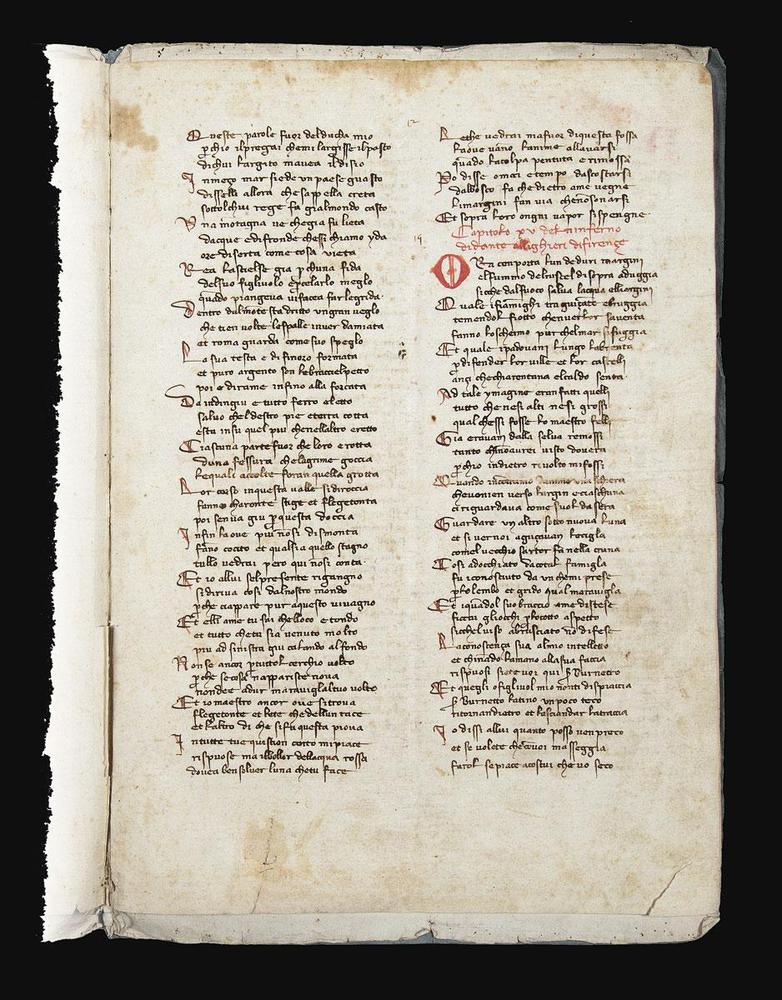 Queste parole fuor del ducha mio
p chio il pregai che mi largisse il pasto
di chui largito mavea il disio
In mezo mar siede un paese guasto
dissegli allora che sappella creta
sottol chui rege fu gia lmondo casto
Una motagna ve che gia fu lieta
dacque e di fronde chessi chiamo yda
ore disorta come cosa vieta
Rea la scielse gia p chuna fida
del suo figlivolo e p celarlo meglo
quado piangeva vi facea far le grida
Dentro dal mote sta dritto un gran veglo
che tien volte le spalle inver damiata
et roma guarda come suo speglo
La sua testa e di fin oro formata
et puro argento son le braccie el petto
poi e di rame infino alla forcata
Da indi in giu e tutto ferro eletto
salvo chel destro pie e terra cotta
e sta insu quel piu che nellaltro eretto
Ciascuna parte fuor che loro e rotta
duna fessura che lagrime goccia
le quali accolte foran quella grotta
Lor corso in questa valle si diroccia
fanno charonte stige et flegetonta
poi sen va giu p questa doccia
Infin la ove piu no si dismonta
fano cocito et qual sia quello stagno
tu llo vedrai pero qui no si conta
Et io allui sel presente rigangno
si diriva cosi dal nostro mondo
p che ci appare pur a questo vivagno
Et elli a me tu sai chel loco e tondo
et tutto che tu sia venuto molto
piu ad sinistra giu calando al fondo
Non se ancor p tuttol cerchio volto
p che se cosa n apparisse nova
non dee adur maraviglia al tuo volto
Et io maestro ancor ove si trova
flegetonte et lete che dellun tace
et laltro di che si fa questa piova
In tutte tue question certo mi piace
rispuose ma il bollor dellacqua rossa
dovea ben solver luna che tu face
12
Lethe vedrai ma fuor di questa fossa
la ove vano lanime a llavarsi
quado la colpa pentuta e rimossa
Po disse omai e tempo da scostarsi
dal bosco fa che dietro a me vegne
li margini fan via che no son arsi
Et sopra loro ongni vapor si spengne
Capitolo xv del ninferno
di dante allighieri di firenze
Ora con porta lun de duri margini
el fummo del ruscel di sopra aduggia
si che dal fuoco salva lacqua elli argini
Quale i fiamighi tra guizate e bruggia
temendol fiotto chenver lor saventa
fanno lo schermo p ur chel mar si fuggia
Et quale i padovani lungo la brenta
p difender lor ville et lor castelli
anzi che charentana el caldo senta
Ad tale ymagine eran fatti quelli
tutto che ne si alti ne si grossi
qual chessi fosse lo maestro felli
Gia eravan dalla selva remossi
tanto chi no avrei visto dovera
p chio indietro rivolto mi fossi
Quando incotramo danime una schiera
che venien verso largin e ciaschuna
ci riguardava come suol da sera
Guardare un altro sotto nuova luna
et si ver noi aguzavan le ciglia
comel vecchio sartor fa nella cruna
Cosi adocchiato da cotal famigla
fu i conosciuto da un che mi prese
p lo lembo et grido qual maravigla
Et io quadol suo braccio a me distese
ficca gliocchi p lo cotto aspetto
si chel viso abrusciato no difese
La conoscenza sua al mio intelletto
et chinado la mano alla sua faccia
rispuosi siete voi qui s Burnetto
Et quegli o figlivol mio no nti dispiaccia
s Burnetto latino un poco teco
ritorna ndietro et lascia ndar la traccia
Io dissi allui quanto posso ven preco
et se volete che cn voi masseggia
farol se piace a costui che vo seco